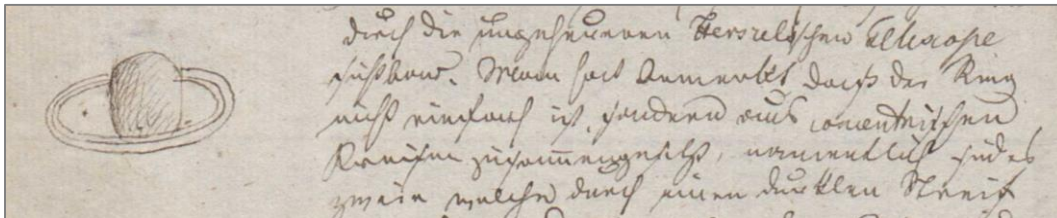 durch die ungeheueren Herschelschen Teleskope
sichtbar. Mann hat bemerkt daß der Ring
nicht einfach ist, sondern aus concentrischen
Kreisen zusammengesetzt, namentlich sind es
zwei welche durch einen dunklen Streif